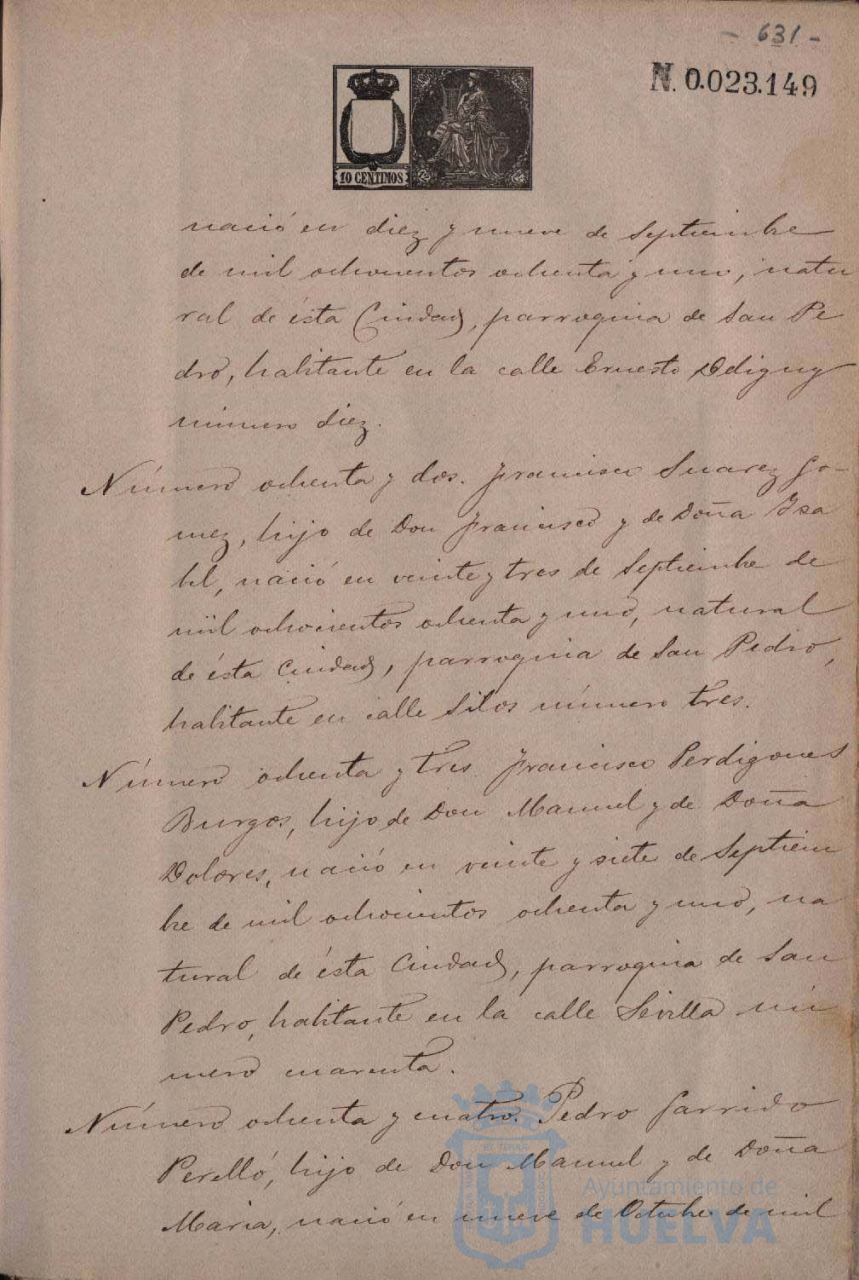 - 631 -
N. 0.023.149
10 CENTIMOS
nació en diez y nueve de Septiembre
de mil ochocientos ochenta y uno, natu
ral de ésta Ciudad, parroquia de San Pe
dro, habitante en la calle Ernesto Deligny
número diez.
Número ochenta y dos. Francisco Suarez Go-
mez, hijo de Don Francisco y de Doña Isa
bel, nació en veinte y tres de Septiembre de
mil ochocientos ochenta y uno, natural
de ésta Ciudad, parroquia de San Pedro,
habitante en calle Silos número tres.
Número ochenta y tres Francisco Perdigones
Burgos, hijo de Don Manuel y de Doña
Dolores, nació en veinte y siete de Septiem
bre de mil ochocientos ochenta y uno, na
tural de ésta Ciudad, parroquia de San
Pedro, habitante en la calle Sevilla nú
mero cuarenta.
Número ochenta y cuatro. Pedro Garrido
Perelló, hijo de Don Manuel y de Doña
Maria, nació en nueve de Octubre de mil
Ayuntamiento de
HUELVA